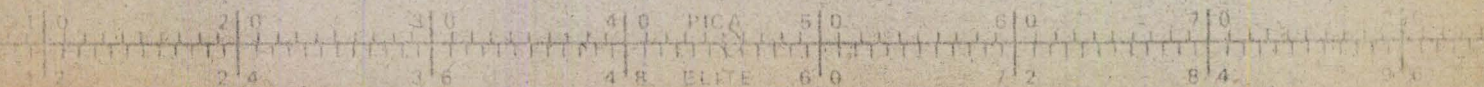 10 20 30 40 PICA 50 60 70
12 24 36 48 ELITE 60 72 84